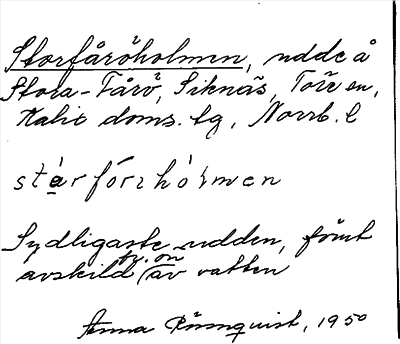 Storfåröholmen, udde å
Stora-Fårö, Siknäs, Töre sn,
Kalix doms. tg, Norrb. l
stárfórrhólmen
Sydligaste udden, förut
fr. ön
avskild (av vatten
Anna Rönnquist, 1950